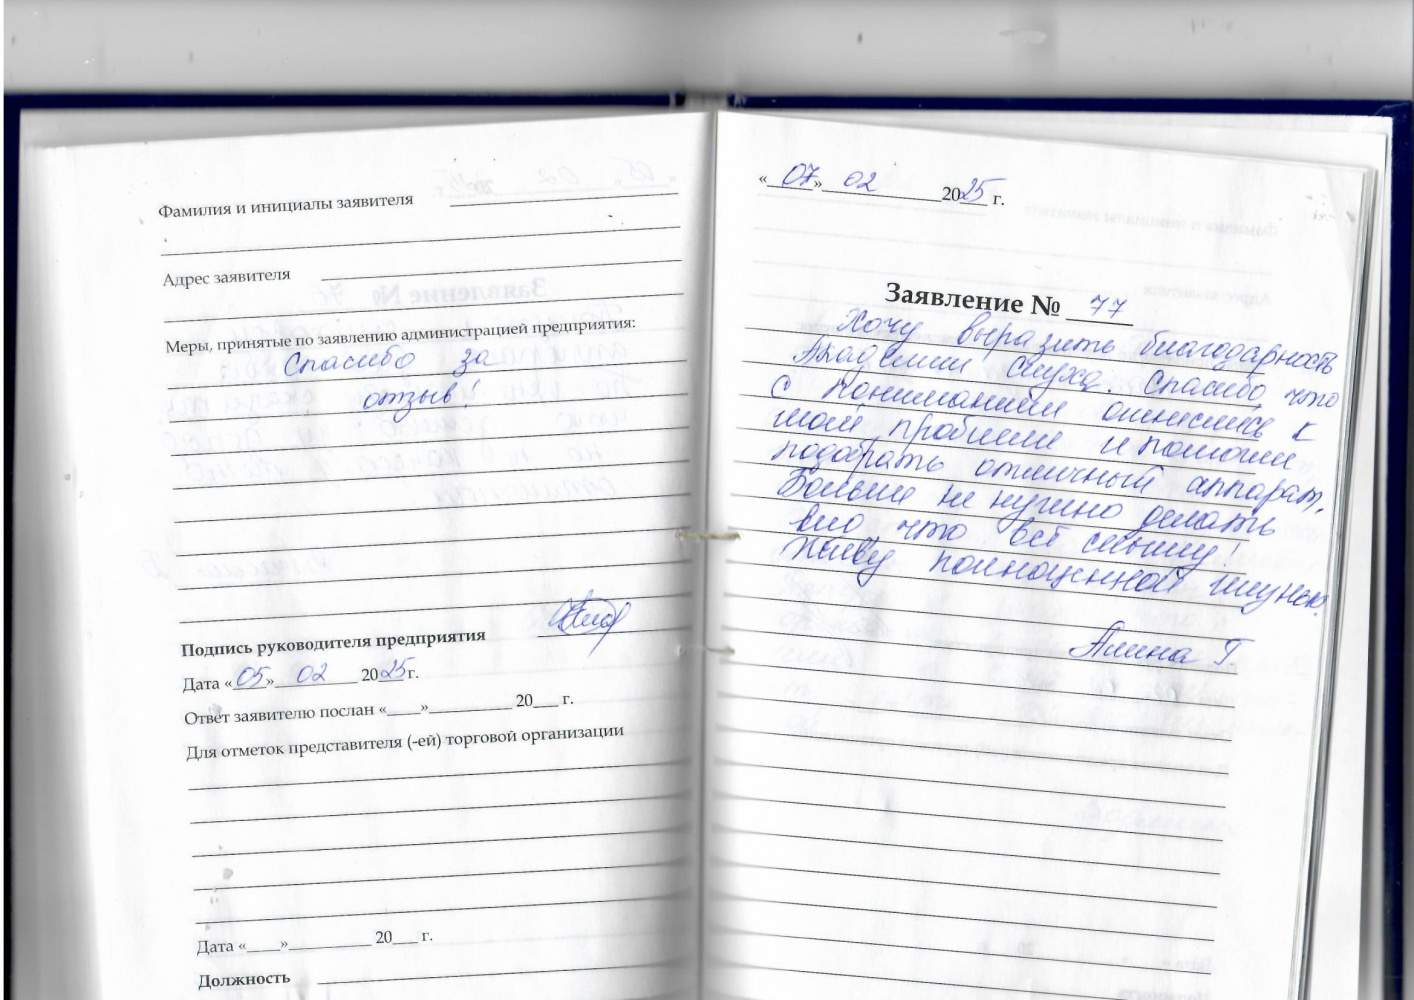 Фамилия и инициалы заявителя
Адрес заявителя
Меры, принятые по заявлению администрацией предприятия:
Спасибо за
отзыв!
Подпись руководителя предприятия
Дата «05» 02 2025 г.
Ответ заявителю послан «____»__________ 20___ г.
Для отметок представителя (-ей) торговой организации
Дата «____»__________ 20___ г.
Должность
«07» 02 2025 г.
Заявление № 77
Хочу выразить благодарность
Академии слуха. Спасибо, что
с пониманием отнеслись к
моей проблеме и помогли
подобрать отличный аппарат.
Больше не нужно делать
вид, что всё слышу!
Живу полноценной жизнью.
Алина Г